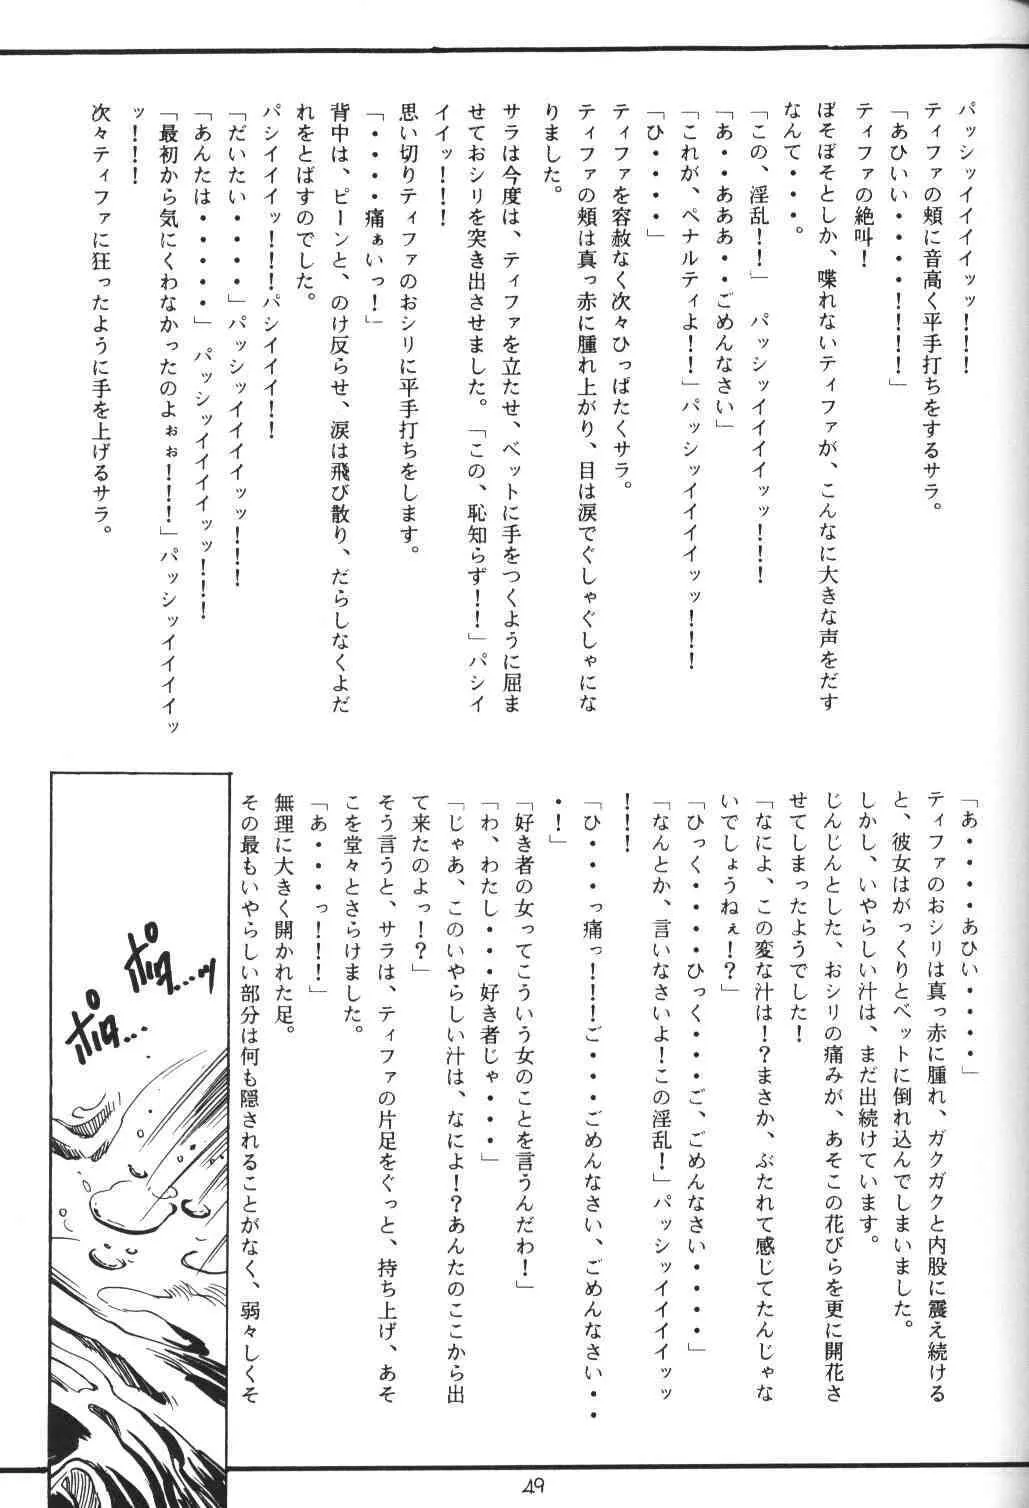 パッシィイイイイッッ!!!
ティファの頬に音高く平手打ちをするサラ。
「あひいい・・・・!!!!」
ティファの絶叫!
ぼそぼそとしか、喋れないティファが、こんなに大きな声をだす
なんて・・・。
「この、淫乱!!」 パッシィイイイイッッ!!!
「あ・・ああぁ・・ごめんなさい」
「これが、ペナルティよ!!」パッシィイイイイッッ!!!
「ひ・・・・」
ティファを容赦なく次々ひっぱたくサラ。
ティファの頬は真っ赤に腫れ上がり、目は涙でぐしゃぐしゃにな
りました。
サラは今度は、ティファを立たせ、ベットに手をつくように屈ま
せておシリを突き出させました。「この、恥知らず!!」パシイ
イイッ!!!
思い切りティファのおシリに平手打ちをします。
「・・・・痛ぁいっ!」
背中は、ピーンと、のけ反らせ、涙は飛び散り、だらしなくよだ
れをとばすのでした。
パシイイイッ!!!パシイイイ!!
「だいたい・・・・」パッシィイイイイッッ!!!
「あんたは・・・・・」 パッシィイイイイッッ!!!
「最初から気にくわなかったのよぉぉ!!!」パッシィイイイイッ
ッ!!!
次々ティファに狂ったように手を上げるサラ。
「あ・・・・あひい・・・・」
ティファのおシリは真っ赤に腫れ、ガクガクと内股に震え続ける
と、彼女はがっくりとベットに倒れ込んでしまいました。
しかし、いやらしい汁は、まだ出続けています。
じんじんとした、おシリの痛みが、あそこの花びらを更に開花さ
せてしまったようでした!
「なによ、この変な汁は!?まさか、ぶたれて感じてたんじゃな
いでしょうねぇ!?」
「ひっく・・・・ひっく・・・ご、ごめんなさい・・・・」
「なんとか、言いなさいよ!この淫乱!」パッシィイイイイッッ
!!!
「ひ・・・・っ痛っ!!!ご・・・・ごめんなさい、ごめんなさい・・
・!」
「好き者の女ってこういう女のことを言うんだわ!」
「わ、わたし・・・好き者じゃ・・・」
「じゃあ、このいやらしい汁は、なによ!?あんたのここから出
て来たのよっ!?」
そう言うと、サラは、ティファの片足をぐっと、持ち上げ、あそ
こを堂々とさらけました。
「あ・・・・っ!!!」
無理に大きく開かれた足。
その最もいやらしい部分は何も隠されることがなく、弱々しくそ
ポタ…ッ
ポタ…
49